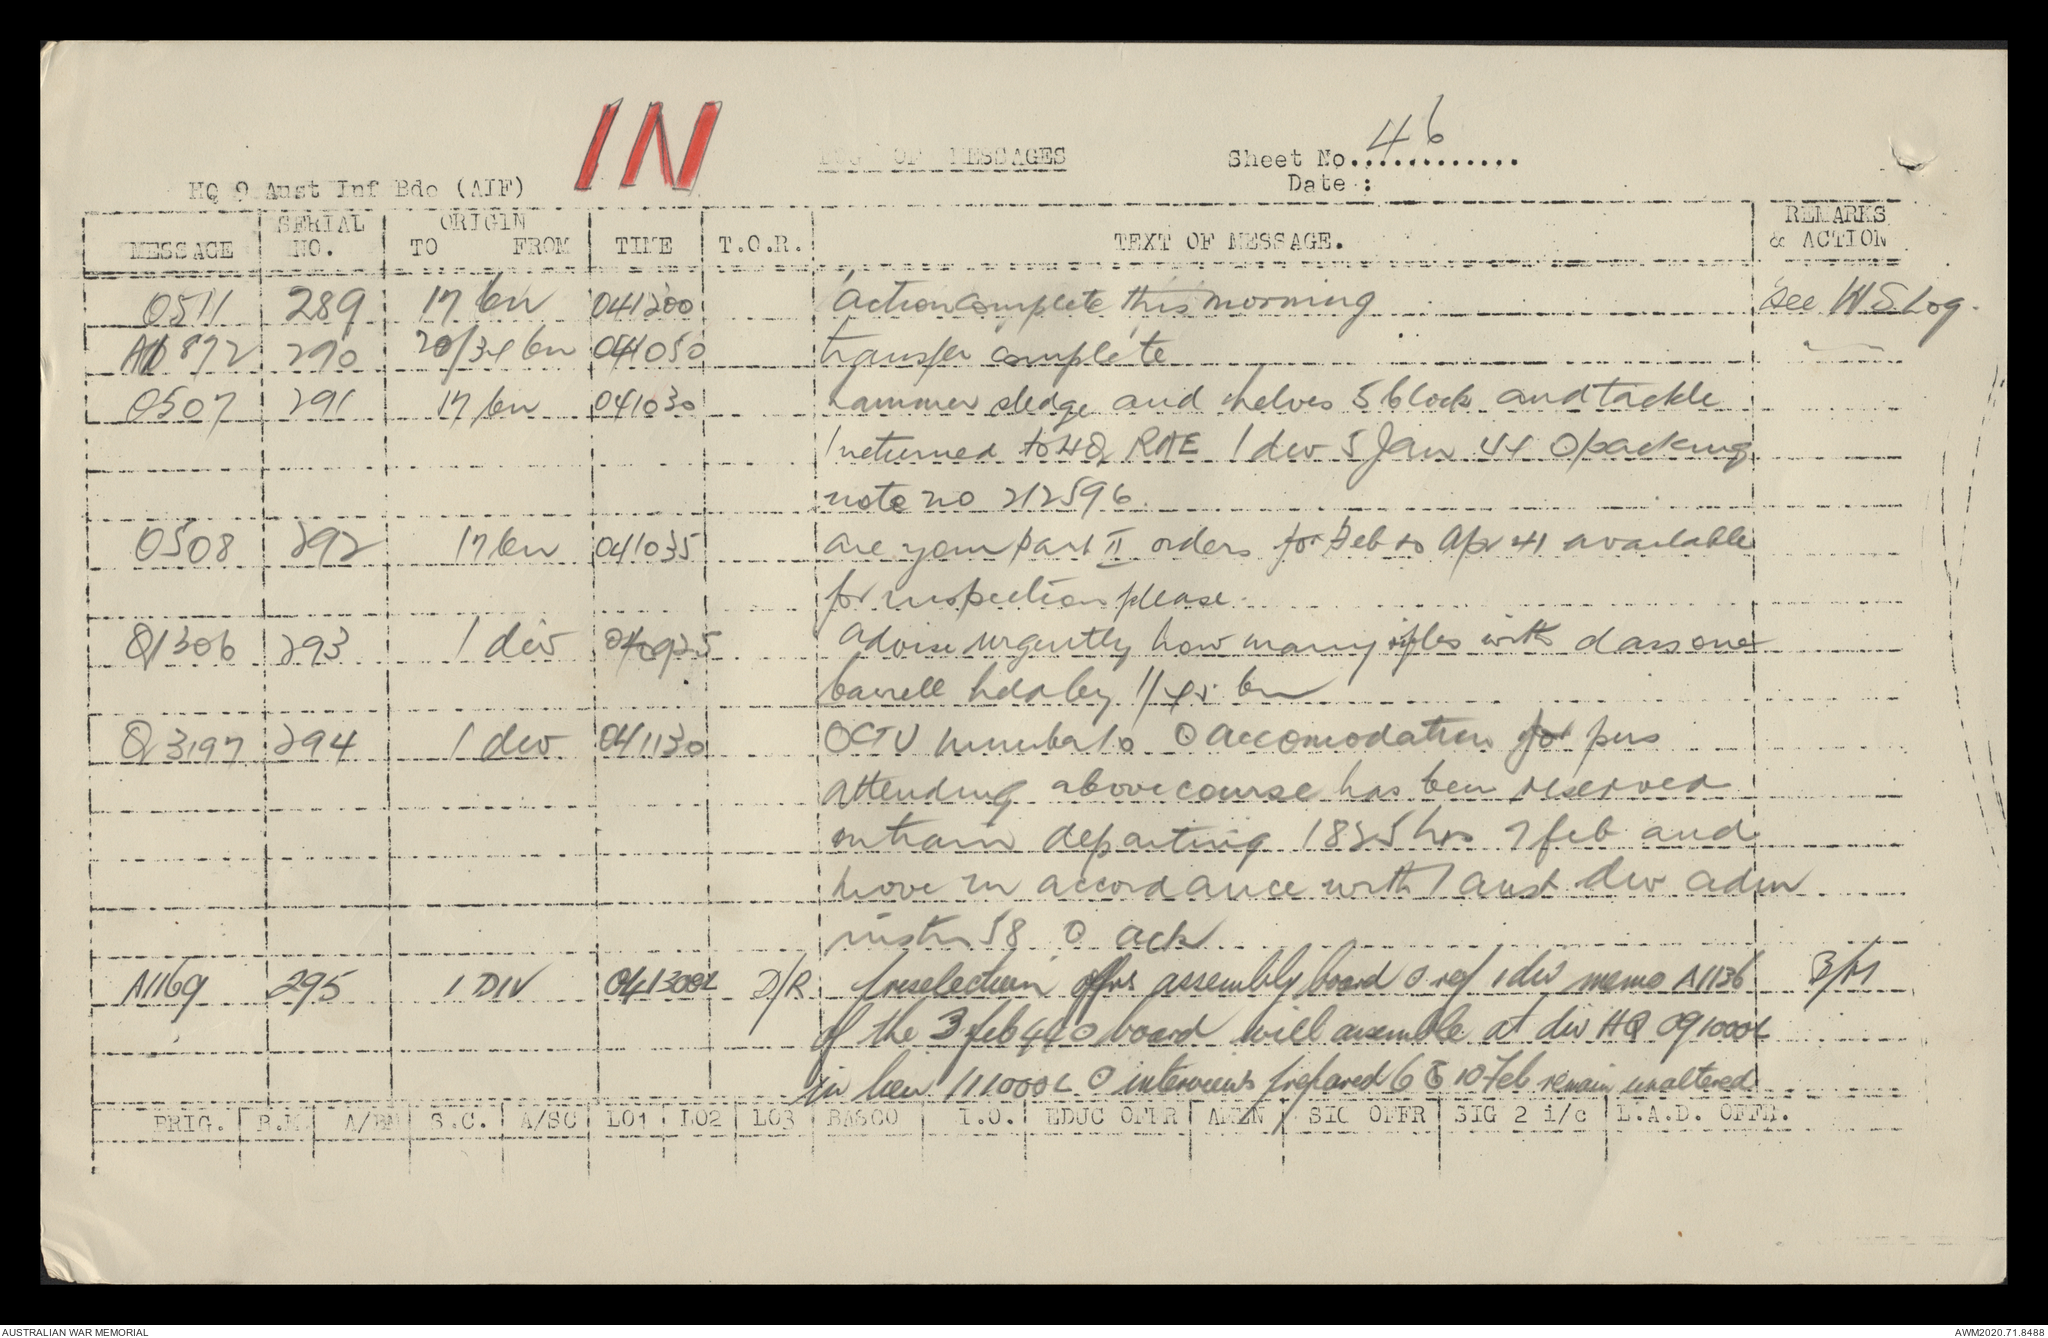 IN
LOG OF MESSAGES
Sheet No. 46
Date :
HQ 9 Aust Inf Bde (AIF)
MESSAGE | SERIAL NO. | ORIGIN TO FROM | TIME | T.O.R. | TEXT OF MESSAGE. | REMARKS & ACTION
O511 | 289 | 17 bn | 041200 | | action complete this morning | See Log.
872 | 290 | 20/34 bn | 041050 | | transfer complete
O507 | 291 | 17 bn | 041030 | | hammer sledge and helves 5 block and tackle
1 returned to HQ RAE 1 div 5 Jan 44 O packing
note no 212596
O508 | 292 | 17 bn | 041035 | | are your part II orders for Feb to Apr 41 available
for inspection please
Q1306 | 293 | 1 div | 040925 | | advise urgently how many rifles with class one
barrell held by bn
Q3197 | 294 | 1 div | 041130 | | OCTU number 10 O accomodation for pers
attending above course has been reserved
on train departing 1825 hrs 7 feb and
move in accordance with 1 aust div adm
instn 58 O ack
A1169 | 295 | 1 DIV | 041300L | D/R | Preselection offrs assembly board O ref 1 div memo A1136 | B/M
of the 3 feb 44 O board will assemble at div HQ 091000L
in lieu 111000L O interviews prepared 6 & 10 Feb remain unaltered
BRIG. | B.M. | A/BM | S.C. | A/SC | LO1 | LO2 | LO3 | BASCO | I.O. | EDUC OFFR | AMEN | SIG OFFR | SIG 2 i/c | L.A.D. OFFR.
AUSTRALIAN WAR MEMORIAL
AWM2020.71.8488